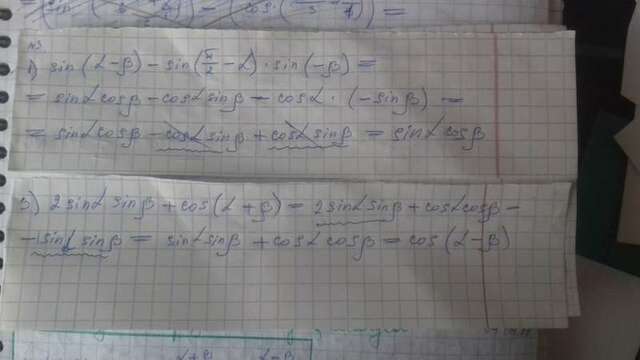 №3.
1) sin(α-β) - sin(π/2 - α) · sin(-β) =
= sinα cosβ - cosα sinβ - cosα · (-sinβ) =
= sinα cosβ - cosα sinβ + cosα sinβ = sinα cosβ
3) 2 sinα sinβ + cos(α+β) = 2 sinα sinβ + cosα cosβ -
- sinα sinβ = sinα sinβ + cosα cosβ = cos(α-β)